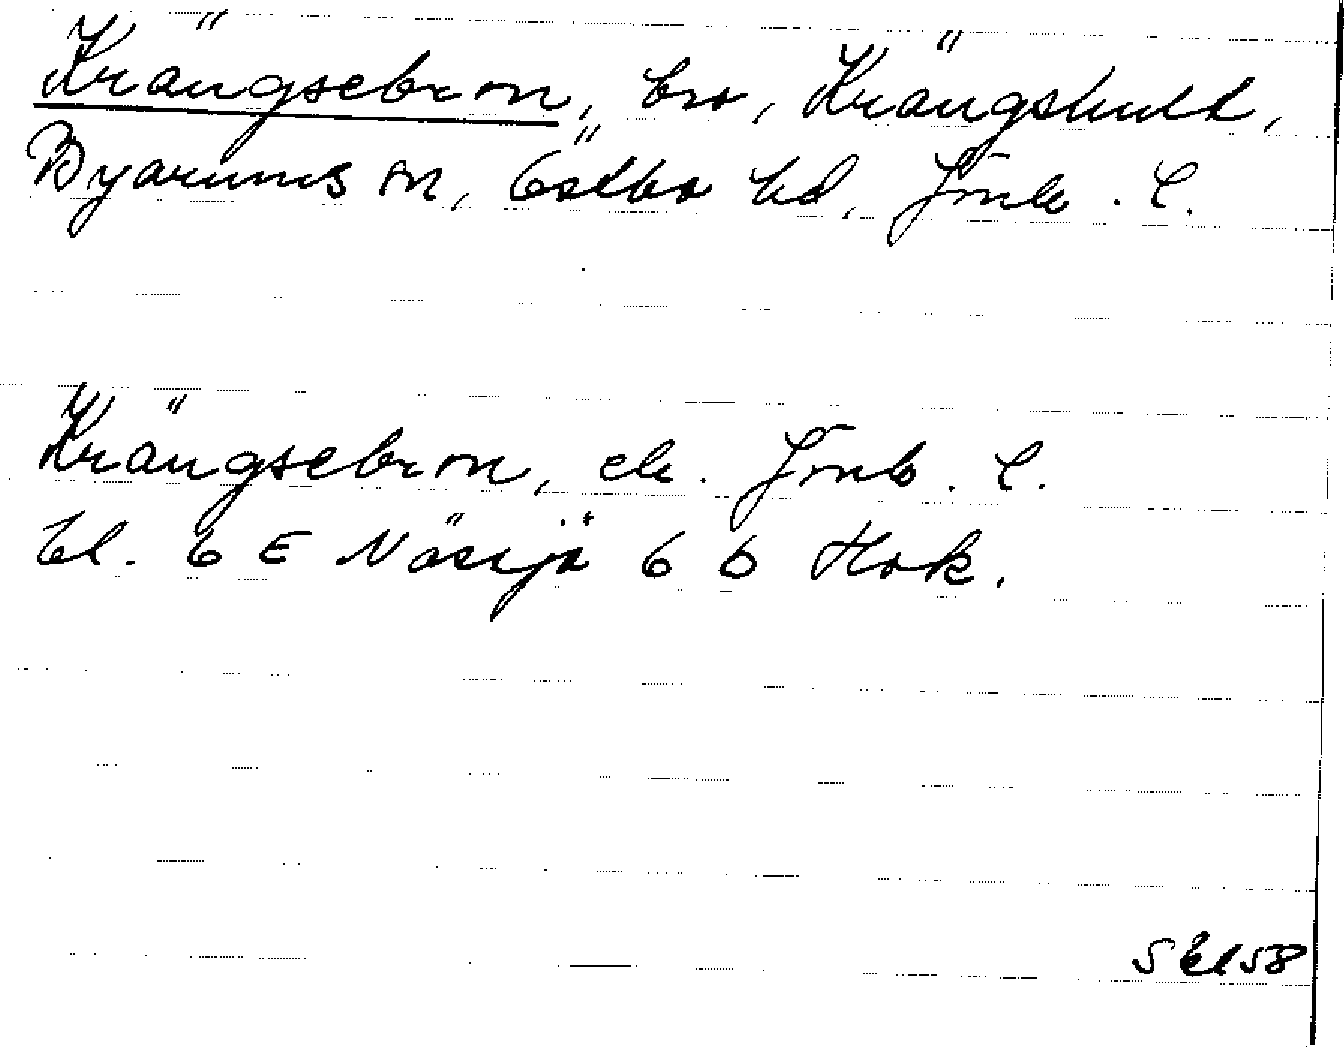 Krängsebron, bro, Krängshult,
Byarums sn, Östbo hd, Jönk. l.
Krängsebron, ek. Jönk. l.
bl. 6 E Nässjö 6 b Hok.